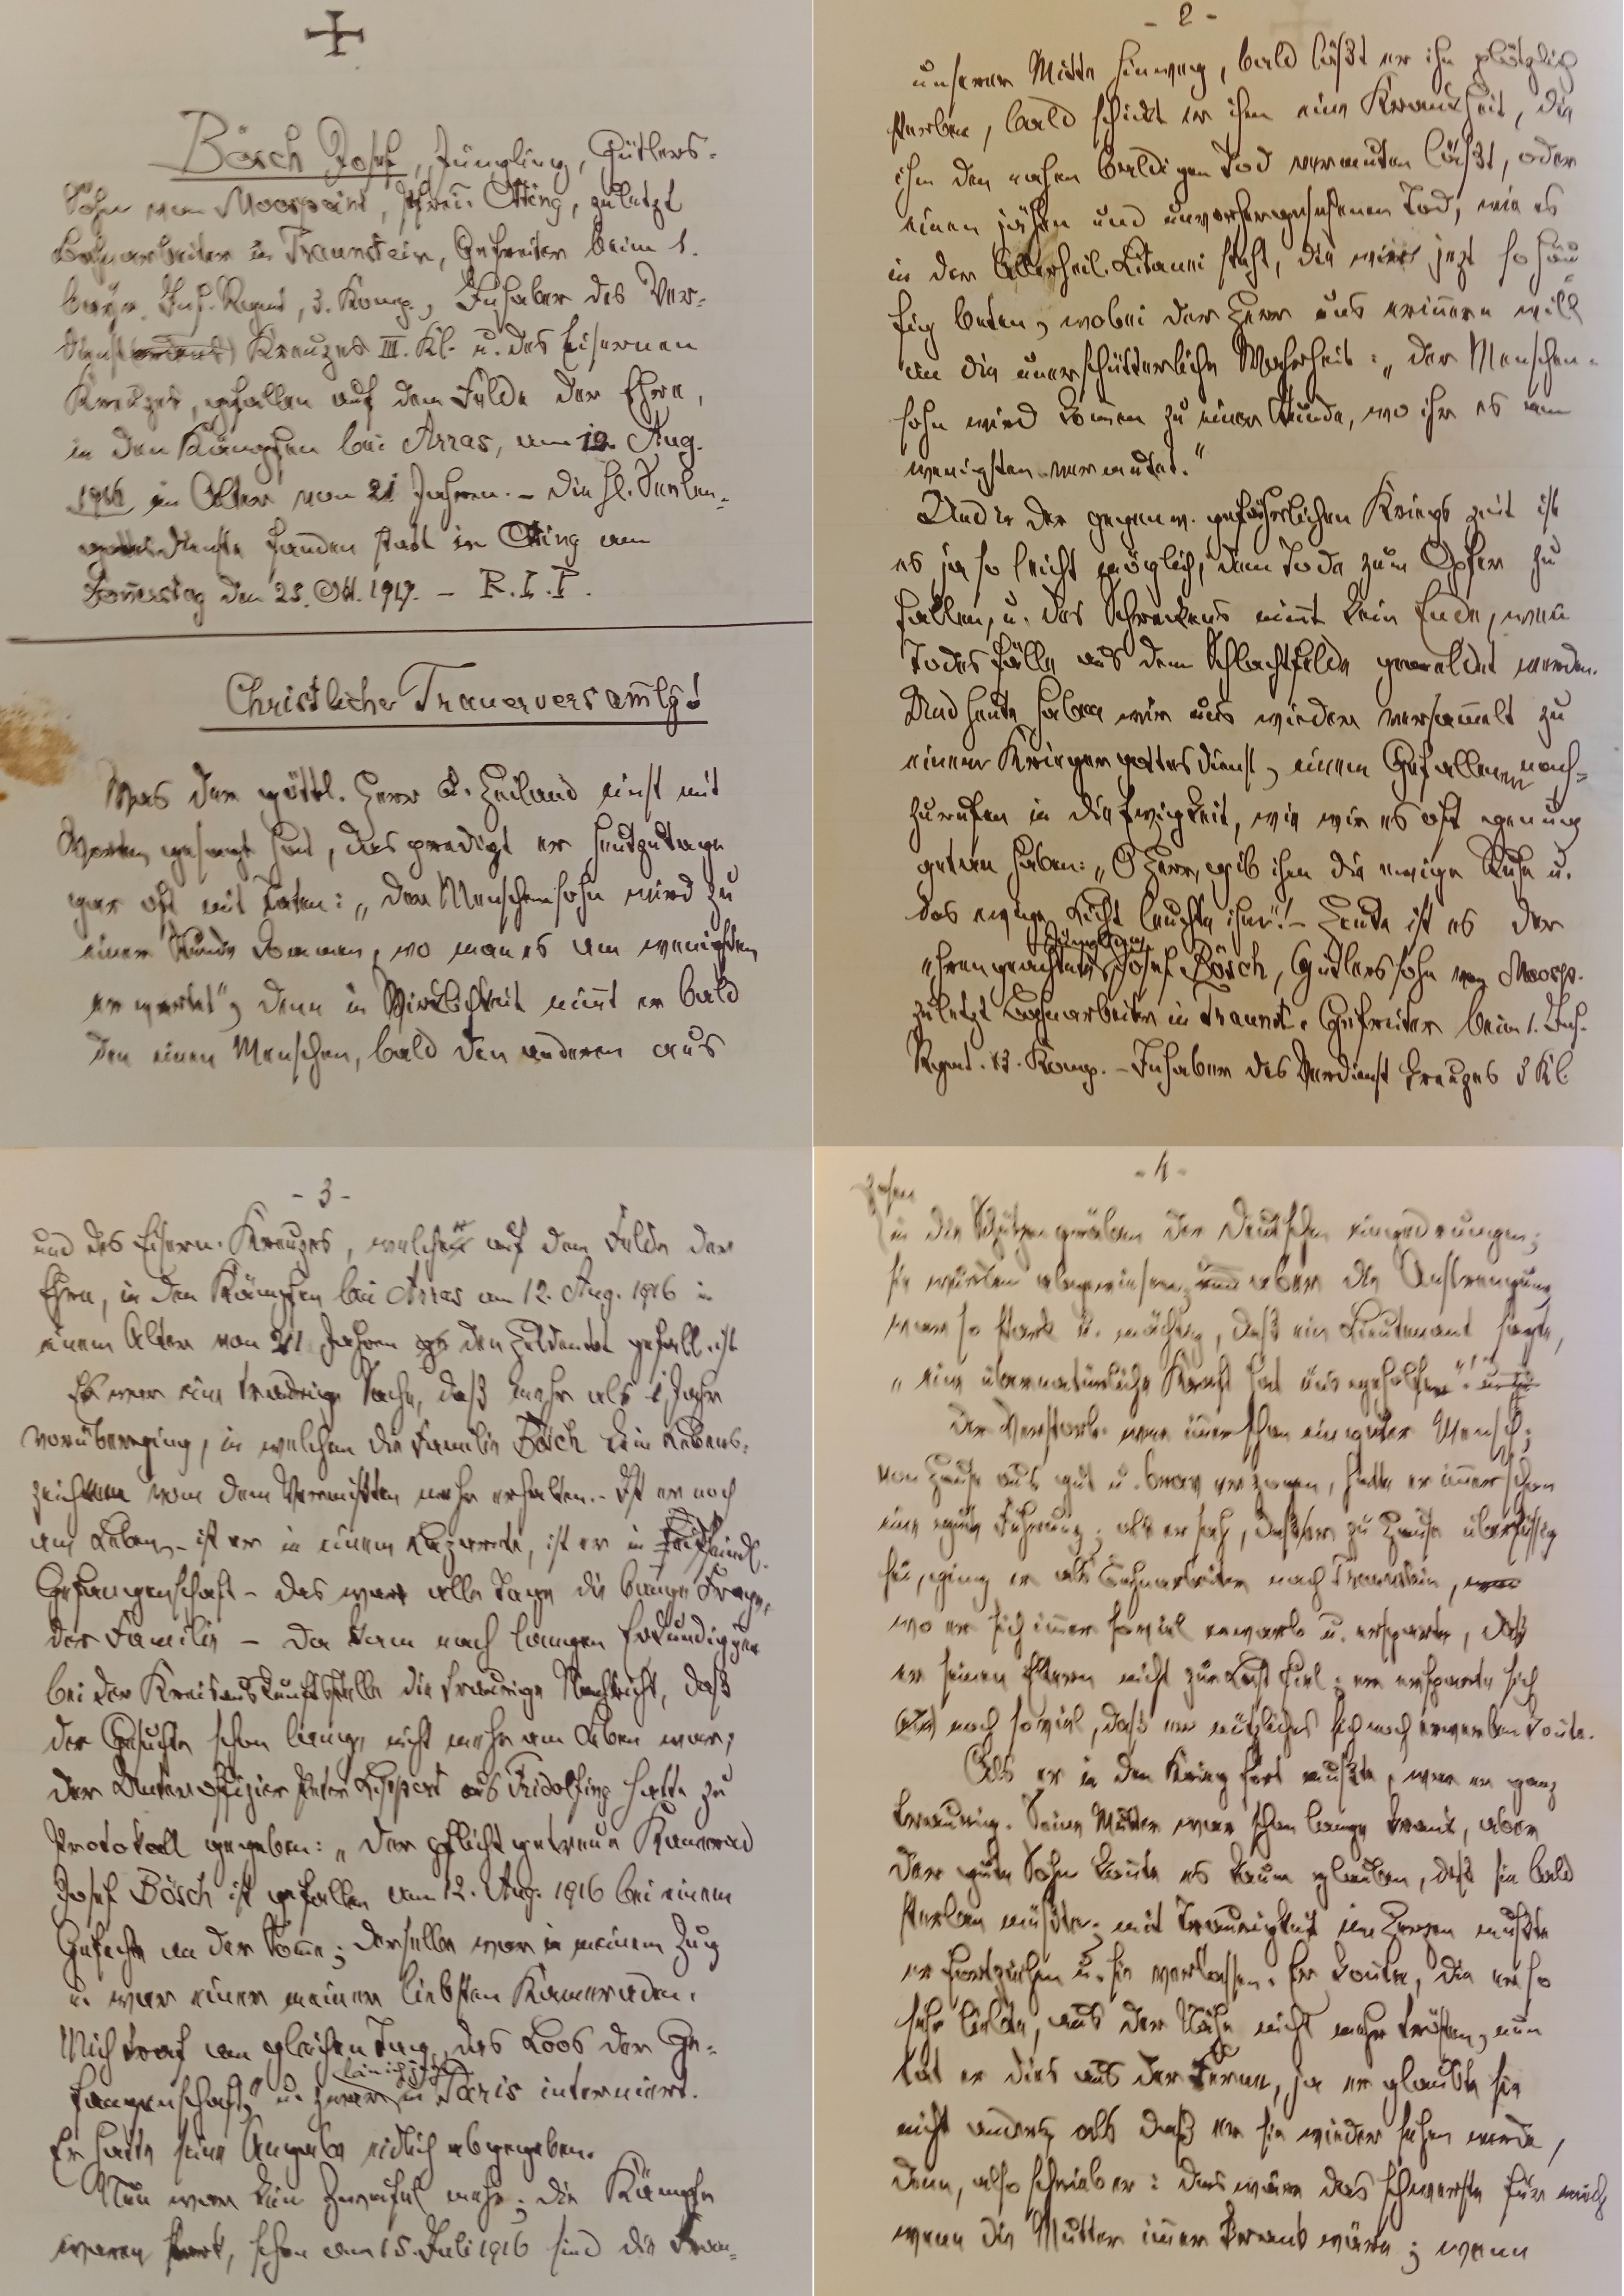 Bösch Josef, Jüngling, Gütlers-
Sohn von Moospoint, Pfarrei Otting, zuletzt
Bahnarbeiter in Traunstein, Gefreiter beim 1.
bayr. Inf. Regmt, 3. Komp., Inhaber des Ver-
dienst(ordens) Kreuzes III. Kl. u. des Eisernen
Kreuzes, gefallen auf dem Felde der Ehre,
in den Kämpfen bei Arras, am 12. Aug.
1916 im Alter von 21 Jahren. – Die hl. Seelen-
gottesdienste fanden statt in Otting am
Donnerstag den 25. Okt. 1917. – R. I. P.
Christliche Trauerversam̅lg!
Was der göttl. Herr u. Heiland einst mit
Worten gesagt hat, das predigt er heutzutage
gar oft mit Taten: „der Menschensohn wird zu
einer Stunde kommen, wo man es am wenigsten
erwartet“; denn in Wirklichkeit nim̅t er bald
den einen Menschen, bald den anderen aus
- 2 -
unserer Mitte hinweg, bald läßt er ihn plötzlich
sterben, bald schickt er ihm eine Krankheit, die
ihm den nahen baldigen Tod vermuten läßt, oder
einen jähen und unvorhergesehenen Tod, wie es
in der Allerheil. Litanei steht, die wir jezt so häu-
fig beten, wobei der Herr uns erin̅ern will
an die unerschütterliche Wahrheit: „der Menschen-
sohn wird kom̅en zu einer Stunde, wo ihr es am
wenigsten vermutet.“
Und in der gegenw. gefährlichen Kriegszeit ist
es ja so leicht möglich, dem Tode zum Opfer zu
fallen, u. des Schreckens nim̅t kein Ende, wen̅
Todesfälle aus dem Schlachtfelde gemeldet werden.
Und heute haben wir uns wieder versam̅elt zu
einem Kriegergottesdienst, einem Gefallenen nach-
zurufen in die Ewigkeit, wie wir es oft genug
getan haben: „O Herr, gib ihm die ewige Ruhe u.
das ewige Licht leuchte ihm“! – Heute ist es der
Jüngling
ehrengeachtete Josef Bösch, Gütlerssohn von Moosp.
zuletzt Bahnarbeiter in Traunst. Gefreiter beim 1. Inf.
Regmt. 3. Komp. – Inhaber des Verdienstkreuzes 3 Kl.
- 3 -
und des Eisern. Kreuzes, welcher auf dem Felde der
Ehre, in den Kämpfen bei Arras am 12. Aug. 1916 in
einem Alter von 21 Jahren den Heldentot gefall. ist
Es war eine traurige Sache, daß mehr als 1 Jahr
vorüberging, in welchem die Familie Bösch kein Lebens-
zeichen von dem Vermißten mehr erhalten. – Ist er noch
am Leben – ist er in einem Lazarete, ist er in feindl.
Gefangenschaft – das war alle Tage die bange Frage
der Familie – Da kam nach langen Erkundiggen
bei der Kreisauskunftstelle die traurige Nachricht, daß
der Gesuchte schon lange nicht mehr am Leben war;
der Unteroffizier Peter Lippert aus Fridolfing hatte zu
Protokoll gegeben: „Der pflichtgetreue Kamerad
Josef Bösch ist gefallen am 12. Aug. 1916 bei einem
Gefechte an der Som̅e; derselbe war in meinem Zug
u. war einer meiner liebsten Kameraden.
Mich traf am gleichen Tag das Loos der Ge-
bin ich jetzt
fangenschaft“, u. zwar in Paris interniert.
Er hatte seine Angabe eidlich abgegeben.
Nun war kein Zweifel mehr; die Kämpfe
waren stark, schon am 15. Juli 1916 sind die Fran-
- 4 -
zosen
in die Schützengräben der Deutschen eingedrungen;
sie wurden abgewiesen, aber die Anstrengung
war so stark u. mächtig, daß ein Lieutenant sagte,
„eine übernatürliche Kraft hat uns geholfen“!
Der Verstorb. war im̅er schon ein guter Mensch;
von Hause aus gut u. brav erzogen, hatte er im̅er schon
eine gute Führung; als er sah, daß er zu Hause überflüssig
sei, ging er als Bahnarbeiter nach Traunstein,
wo er sich im̅er soviel erwarb u. ersparte, daß
er seinen Eltern nicht zur Last fiel; er ersparte sich
noch soviel, daß er nützliches sich noch erwerben kon̅te.
Als er in den Krieg fort mußte, war er ganz
traurig. Seine Mutter war schon lange krank, aber
der gute Sohn kon̅te es kaum glauben, daß sie bald
sterben müßte; mit Traurigkeit im Herzen mußte
er fortziehen u. sie verlassen. Er kon̅te, die er so
sehr liebte, aus der Nähe nicht mehr trösten, nun
tat er dies aus der Ferne, ja er glaubte sie
nicht anders, als daß er sie wieder sehen werde,
denn, also schrieb er: das wäre das schwerste für mich
wenn die Mutter im̅er krank wäre; wenn